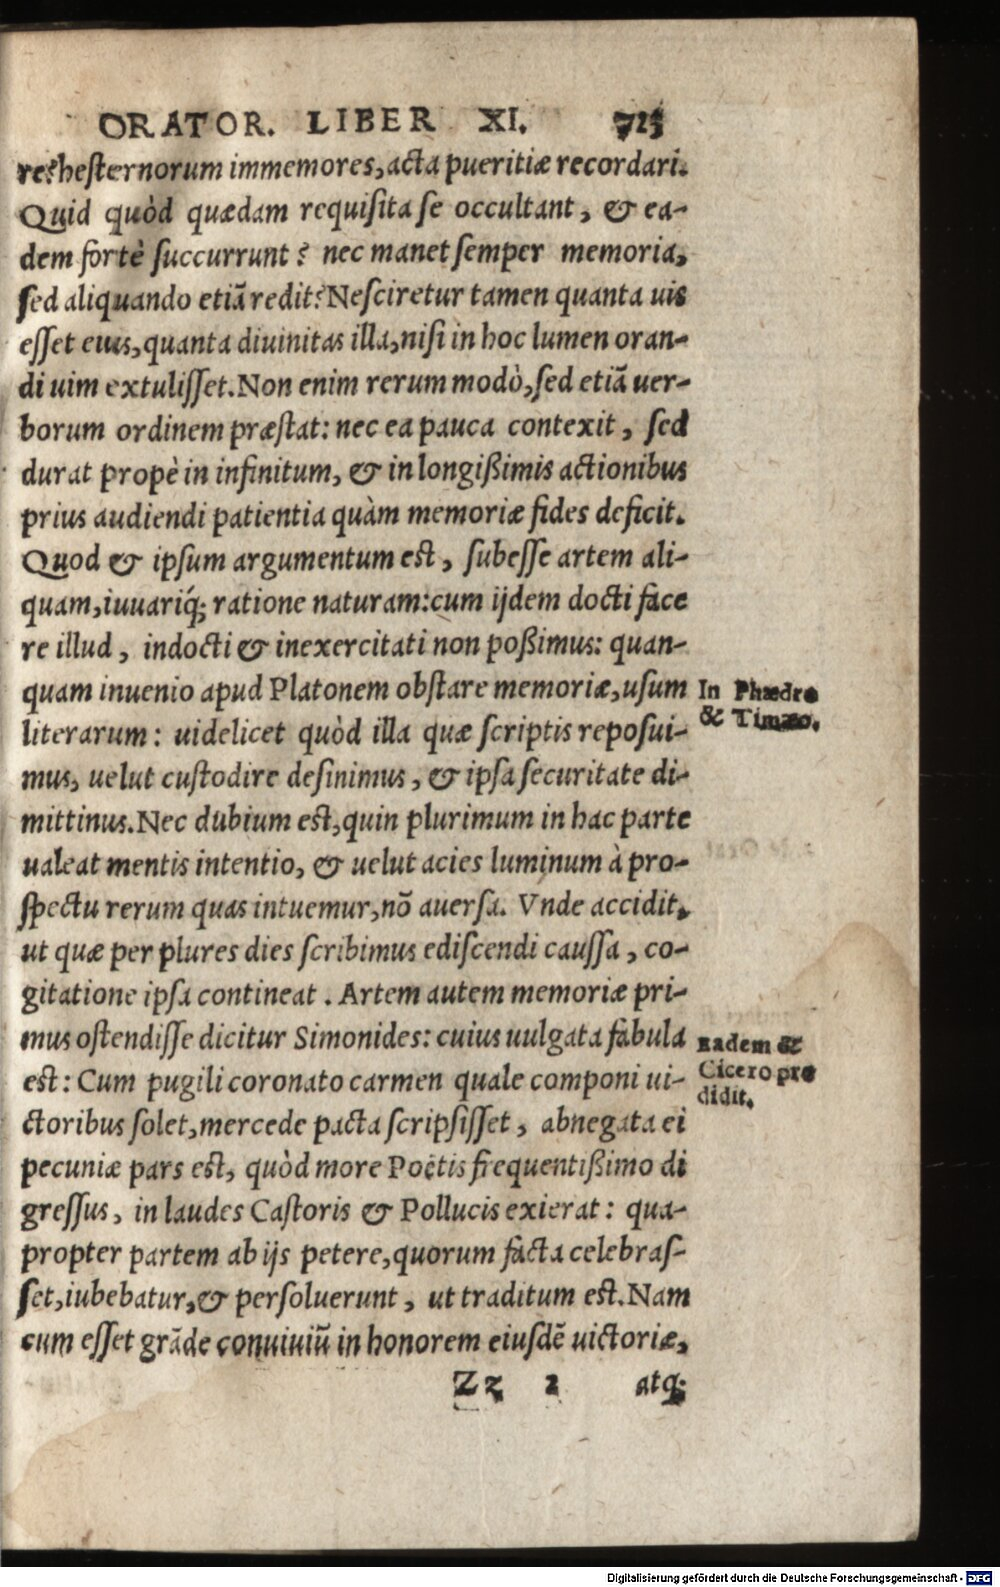 ORATOR. LIBER XI. 723
re? hesternorum immemores, acta pueritiæ recordari.
Quid quòd quædam requisita se occultant, & ea-
dem fortè succurrunt? nec manet semper memoria,
sed aliquando etiã redit? Nesciretur tamen quanta uis
esset eius, quanta diuinitas illa, nisi in hoc lumen oran-
di uim extulisset. Non enim rerum modò, sed etiã uer-
borum ordinem præstat: nec ea pauca contexit, sed
durat propè in infinitum, & in longißimis actionibus
prius audiendi patientia quàm memoriæ fides deficit.
Quod & ipsum argumentum est, subesse artem ali-
quam, iuuariq́; ratione naturam: cum ijdem docti face
re illud, indocti & inexercitati non poßimus: quan-
quam inuenio apud Platonem obstare memoriæ, usum
literarum: uidelicet quòd illa quæ scriptis reposui-
mus, uelut custodire desinimus, & ipsa securitate di-
mittinus. Nec dubium est, quin plurimum in hac parte
ualeat mentis intentio, & uelut acies luminum à pro-
spectu rerum quas intuemur, nõ auersa. Vnde accidit,
ut quæ per plures dies scribimus ediscendi caussa, co-
gitatione ipsa contineat. Artem autem memoriæ pri-
mus ostendisse dicitur Simonides: cuius uulgata fabula
est: Cum pugili coronato carmen quale componi ui-
ctoribus solet, mercede pacta scripsisset, abnegata ei
pecuniæ pars est, quòd more Poëtis frequentißimo di
gressus, in laudes Castoris & Pollucis exierat: qua-
propter partem ab ijs petere, quorum facta celebras-
set, iubebatur, & persoluerunt, ut traditum est. Nam
cum esset grãde conuiuiũ in honorem eiusdẽ uictoriæ,
Zz 2 atq;
In Phædro
& Timæo.
Eadem &
Cicero pro
didit.
Digitalisierung gefördert durch die Deutsche Forschungsgemeinschaft - DFG